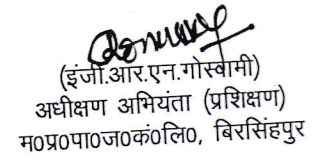 (इंजी.आर.एन.गोस्वामी)
अधीक्षण अभियंता (प्रशिक्षण)
म०प्र०पा०ज०कं०लि०, बिरसिंहपुर